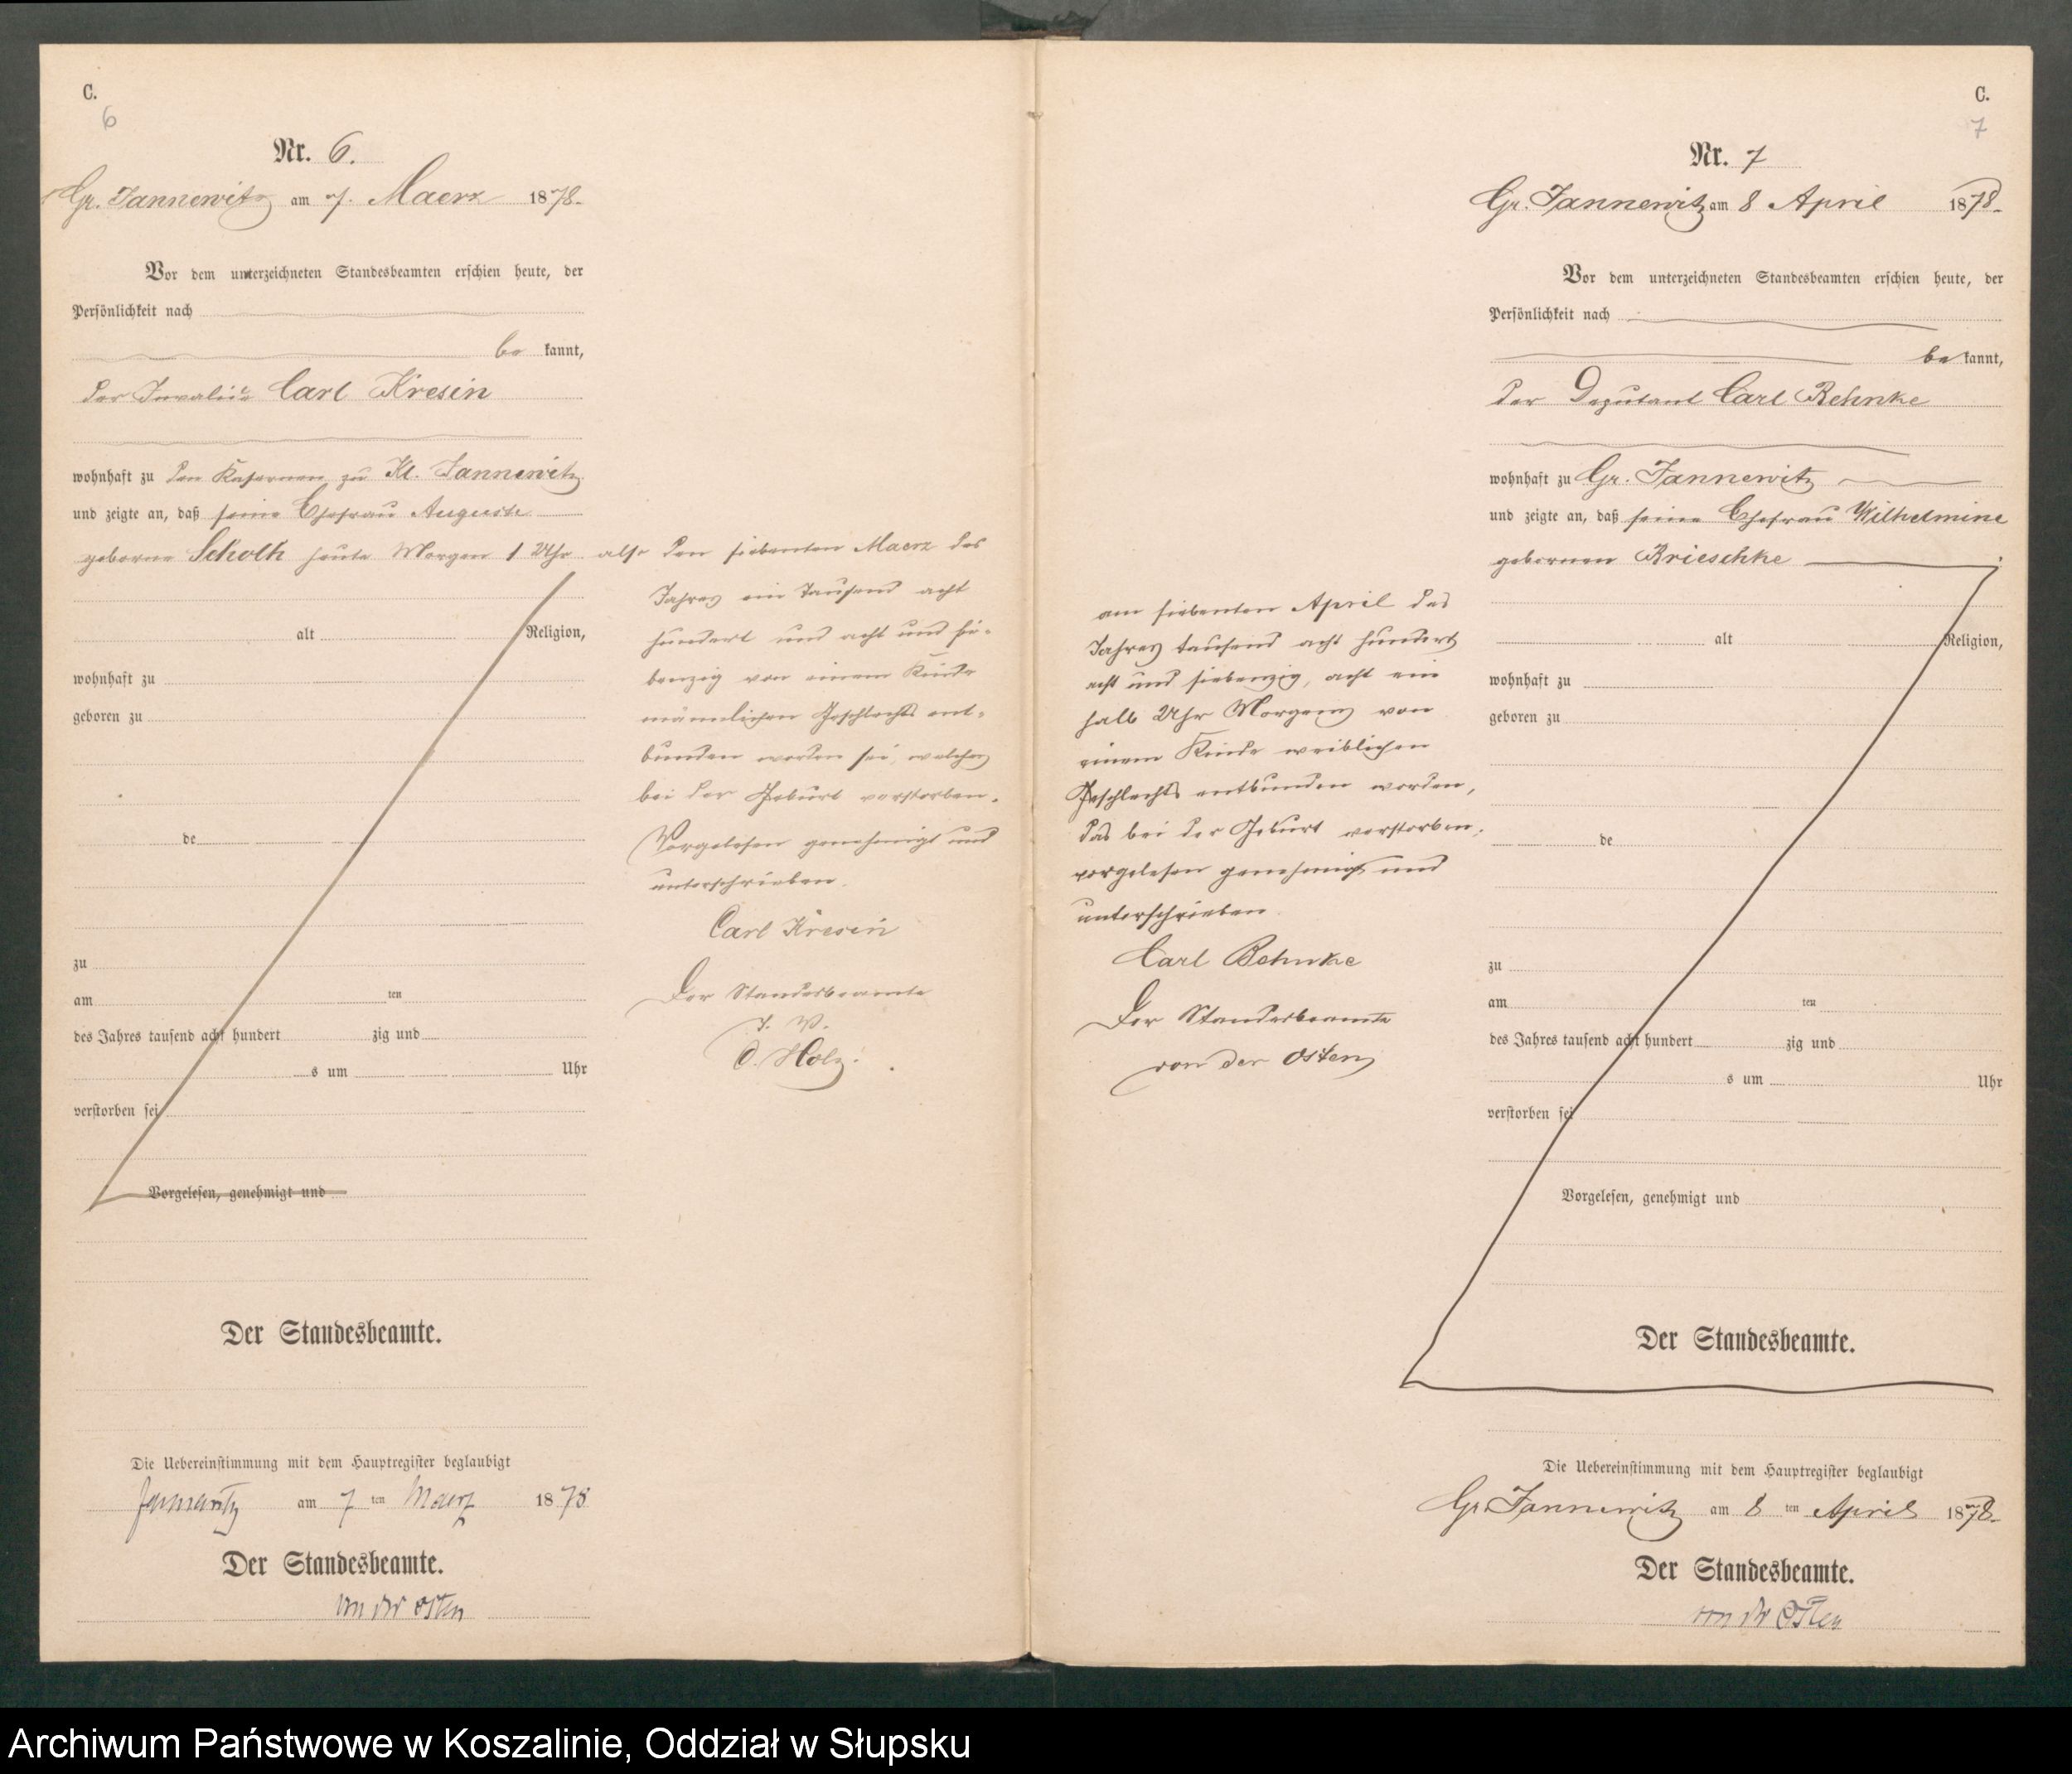 C.
6
Nr. 6.
Gr. Jannewitz am 7. Maerz 1878.
Vor dem unterzeichneten Standesbeamten erschien heute, der
Persönlichkeit nach
be kannt,
der Invalide Carl Kresin
wohnhaft zu den Kasernen zu Kl. Jannewitz
und zeigte an, daß seine Ehefrau Auguste
geborne Scholk heute Morgen 1 Uhr also den siebenten Maerz des
Jahres ein Tausend acht
hundert und acht und sie-
benzig von einem Kinde
männlichen Geschlechts ent-
bunden worden sei, welches
bei der Geburt verstorben.
Vorgelesen genehmigt und
unterschrieben.
Carl Kresin
Der Standesbeamte
I. V.
O. Holz.
alt Religion,
wohnhaft zu
geboren zu
de
zu
am ten
des Jahres tausend acht hundert zig und
s um Uhr
verstorben sei
Vorgelesen, genehmigt und
Der Standesbeamte.
Die Uebereinstimmung mit dem Hauptregister beglaubigt
Jannewitz am 7 ten Maerz 1878
Der Standesbeamte.
von der Osten
C.
7
Nr. 7
Gr. Jannewitz am 8 April 1878.
Vor dem unterzeichneten Standesbeamten erschien heute, der
Persönlichkeit nach
be kannt,
der Deputant Carl Behnke
wohnhaft zu Gr. Jannewitz
und zeigte an, daß seine Ehefrau Wilhelmine
gebornen Krieschke
am siebenten April des
Jahres tausend acht hundert
acht und siebenzig, acht ein
halb Uhr Morgens von
einem Kinde weiblichen
Geschlechts entbunden worden,
das bei der Geburt verstorben.
vorgelesen genehmigt und
unterschrieben.
Carl Behnke
Der Standesbeamte
von der Osten
alt Religion,
wohnhaft zu
geboren zu
de
zu
am ten
des Jahres tausend acht hundert zig und
s um Uhr
verstorben sei
Vorgelesen, genehmigt und
Der Standesbeamte.
Die Uebereinstimmung mit dem Hauptregister beglaubigt
Gr. Jannewitz am 8 ten April 1878.
Der Standesbeamte.
von der Osten
Archiwum Państwowe w Koszalinie, Oddział w Słupsku